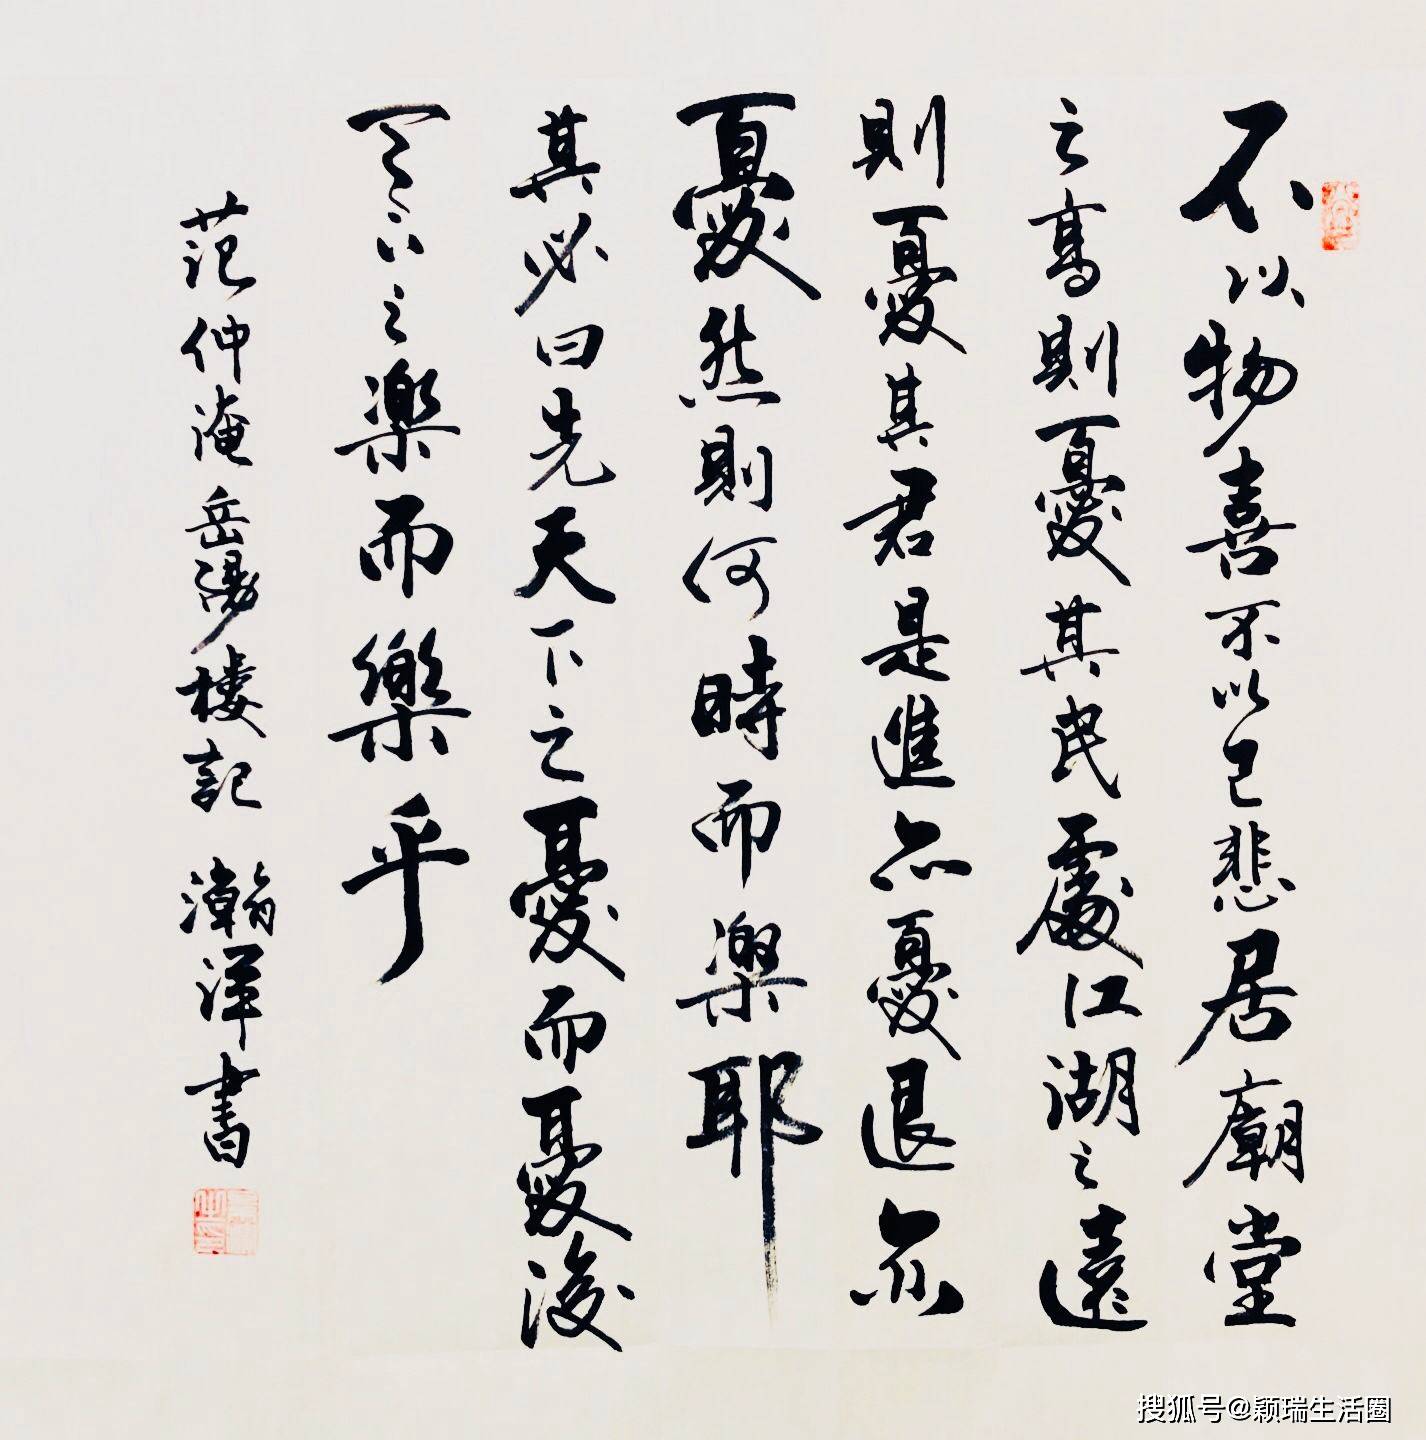 不以物喜不以己悲居廟堂
之高則憂其民處江湖之遠
則憂其君是進亦憂退亦
憂然則何時而樂耶
其必曰先天下之憂而憂後
天下之樂而樂乎
范仲淹岳陽樓記 瀚洋書
搜狐号@颖瑞生活圈